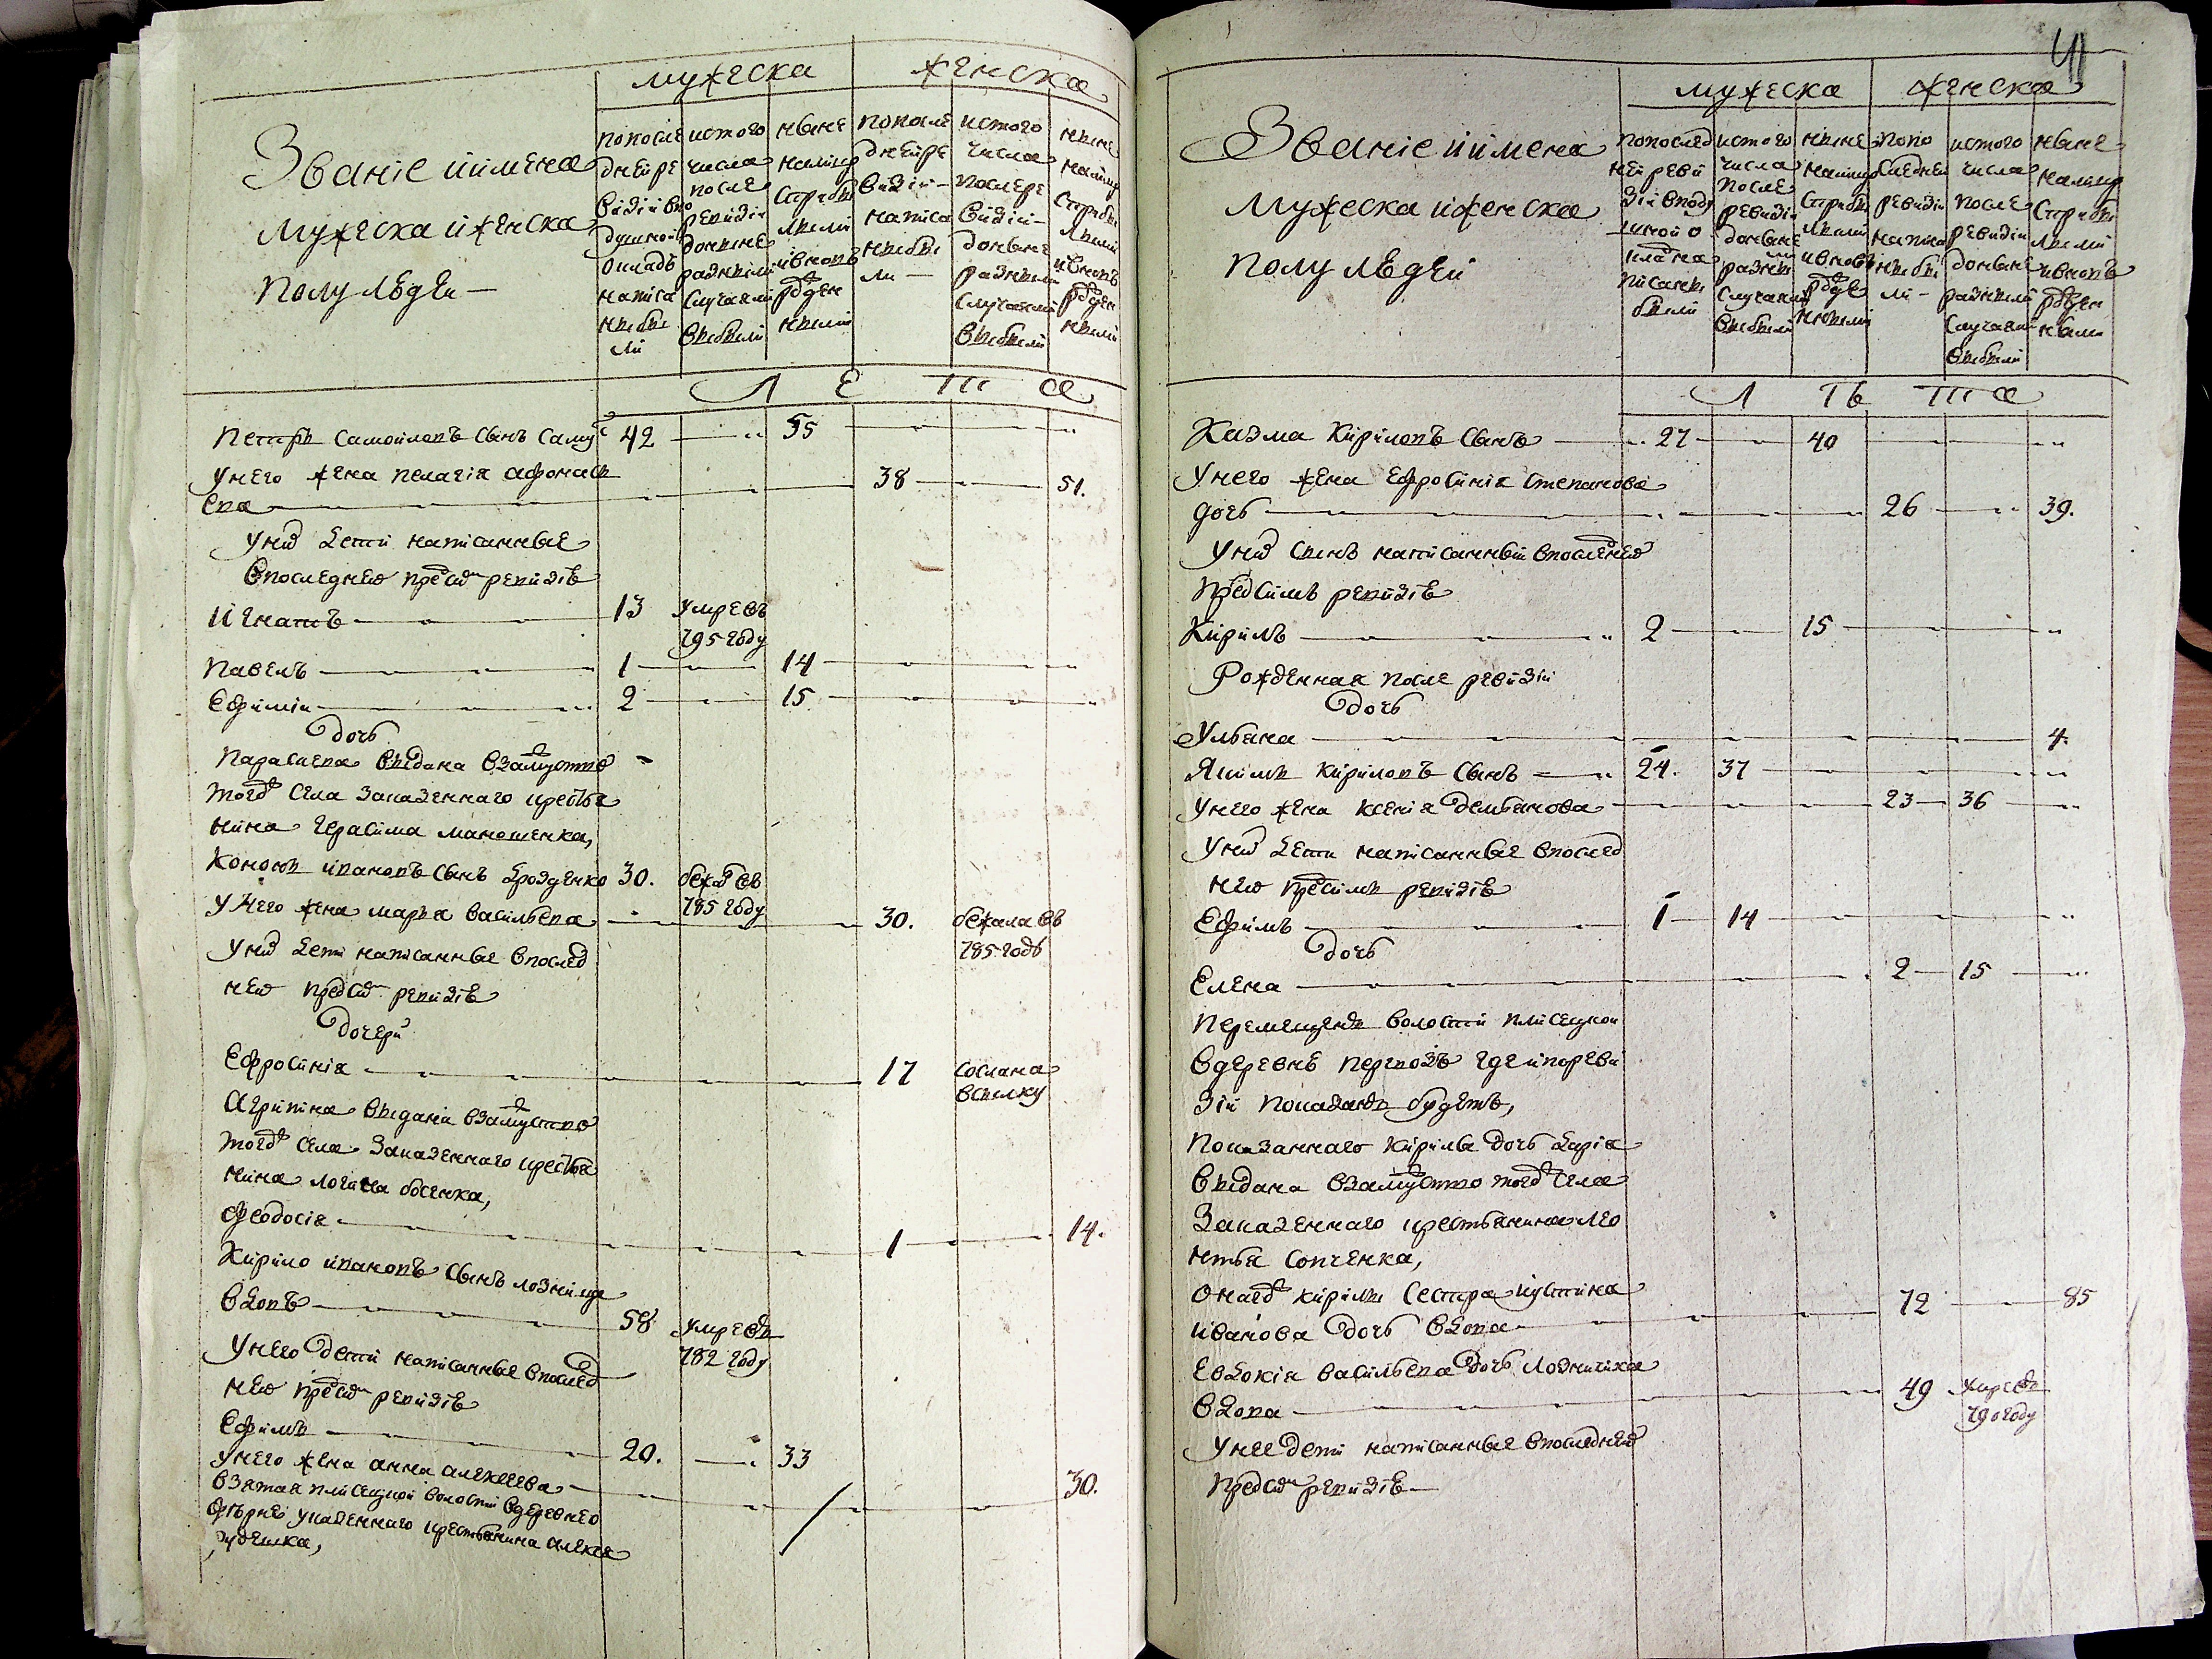 мужеска женска
Званіе и имена
мужеска и женска
полу людей —
попосле
днейре
визіи впо
душной
окладъ
написа
ны бы
ли
истого
числа
после
ревизіи
доныне
разными
случаями
выбыли
ныне
налицо
старыми
и вновь
рожден
ными
попосле
днейре
визіи —
написа
ны бы
ли —
истого
числа
послере
визіи —
доныне
разными
случаями
выбыли
ныне
налицо
и вновь
рожден
ными
Л Е Т А
Петръ Самойловъ сынъ 42 — 55
Унего жена Пелагія Афонась
ева — 38 — 51.
Унихъ дети написанные
впоследнею пред симъ ревизіею
Игнатъ — 13 умре въ
795 году
Павелъ — 1 — 14
Ефимій — 2 — 15
дочь
Параскева выдана взамужество
тогож села Заказенного крестья
нина Герасима Маношенка,
Кононъ Ивановъ сынъ Дрозденко 30. бежа въ
785 году
Унего жена Марья Васильева — 30. бежала въ
785 годъ
Унихъ дети написанные впослед
нею пред симъ ревизіею
дочери
Ефросинія — 17 сослана
в сылку
Агрипина выдана взамужество
тогож села Заказенного крестья
нина Логина
Феодосія — 1 — 14.
Кирило Ивановъ сынъ Лозница
вдовъ — 58 умре въ
782 году
Унего дети написанные впослед
нею пред симъ ревизіею
Ефимъ — 20. — 33
Унего жена Анна Алексеева — 30.
взятая Плисецкой волости в деревне
у казенного крестьянина Алексея
41
мужеска женска
Званіе и имена
мужеска и женска
полу людей
попослед
ней реви
зіи вподу
шной о
кладъ на
писаны
были
истого
числа
после
ревизіи
доныне
разными
случаями
выбыли
ныне
налицо
старыми
и вновь
рожде
нными
попо
следней
ревизіи
написа
ны бы
ли —
истого
числа
после
ревизіи
доныне
разными
случаями
выбыли
ныне
налицо
и вновь
рожден
ными
Л Ѣ Т А
Казма Кириловъ сынъ — 27 — 40
Унего жена Ефросинія Степанова
дочь — 26 — 39.
Унихъ сынъ написанный впоследнею
пред симъ ревизіею
Кирилъ — 2 — 15
Рожденная после ревизіи
дочь
Ульяна — 4.
Якимъ Кириловъ сынъ — 24. 37
Унего жена Ксенія Демьянова — 23 — 36
Унихъ дети написанные впослед
нею пред симъ ревизіею
Ефимъ — 1 — 14
дочь
Елена — 2 — 15
перемещены волости Плисецкой
в деревнѣ Перевозъ где и по реви
зіи показаны будетъ,
показанного Кирилы дочь Дарія
выдана взамужество тогож села
Заказенного крестьянина Лео
нтья Сопченка,
онагож Кирилы сестра Иустина
Иванова дочь вдова — 72 — 85
Евдокія Васильева дочь Лозничиха
вдова — 49 умре въ
790 году
Унее дети написанные впоследнею
пред симъ ревизіею —